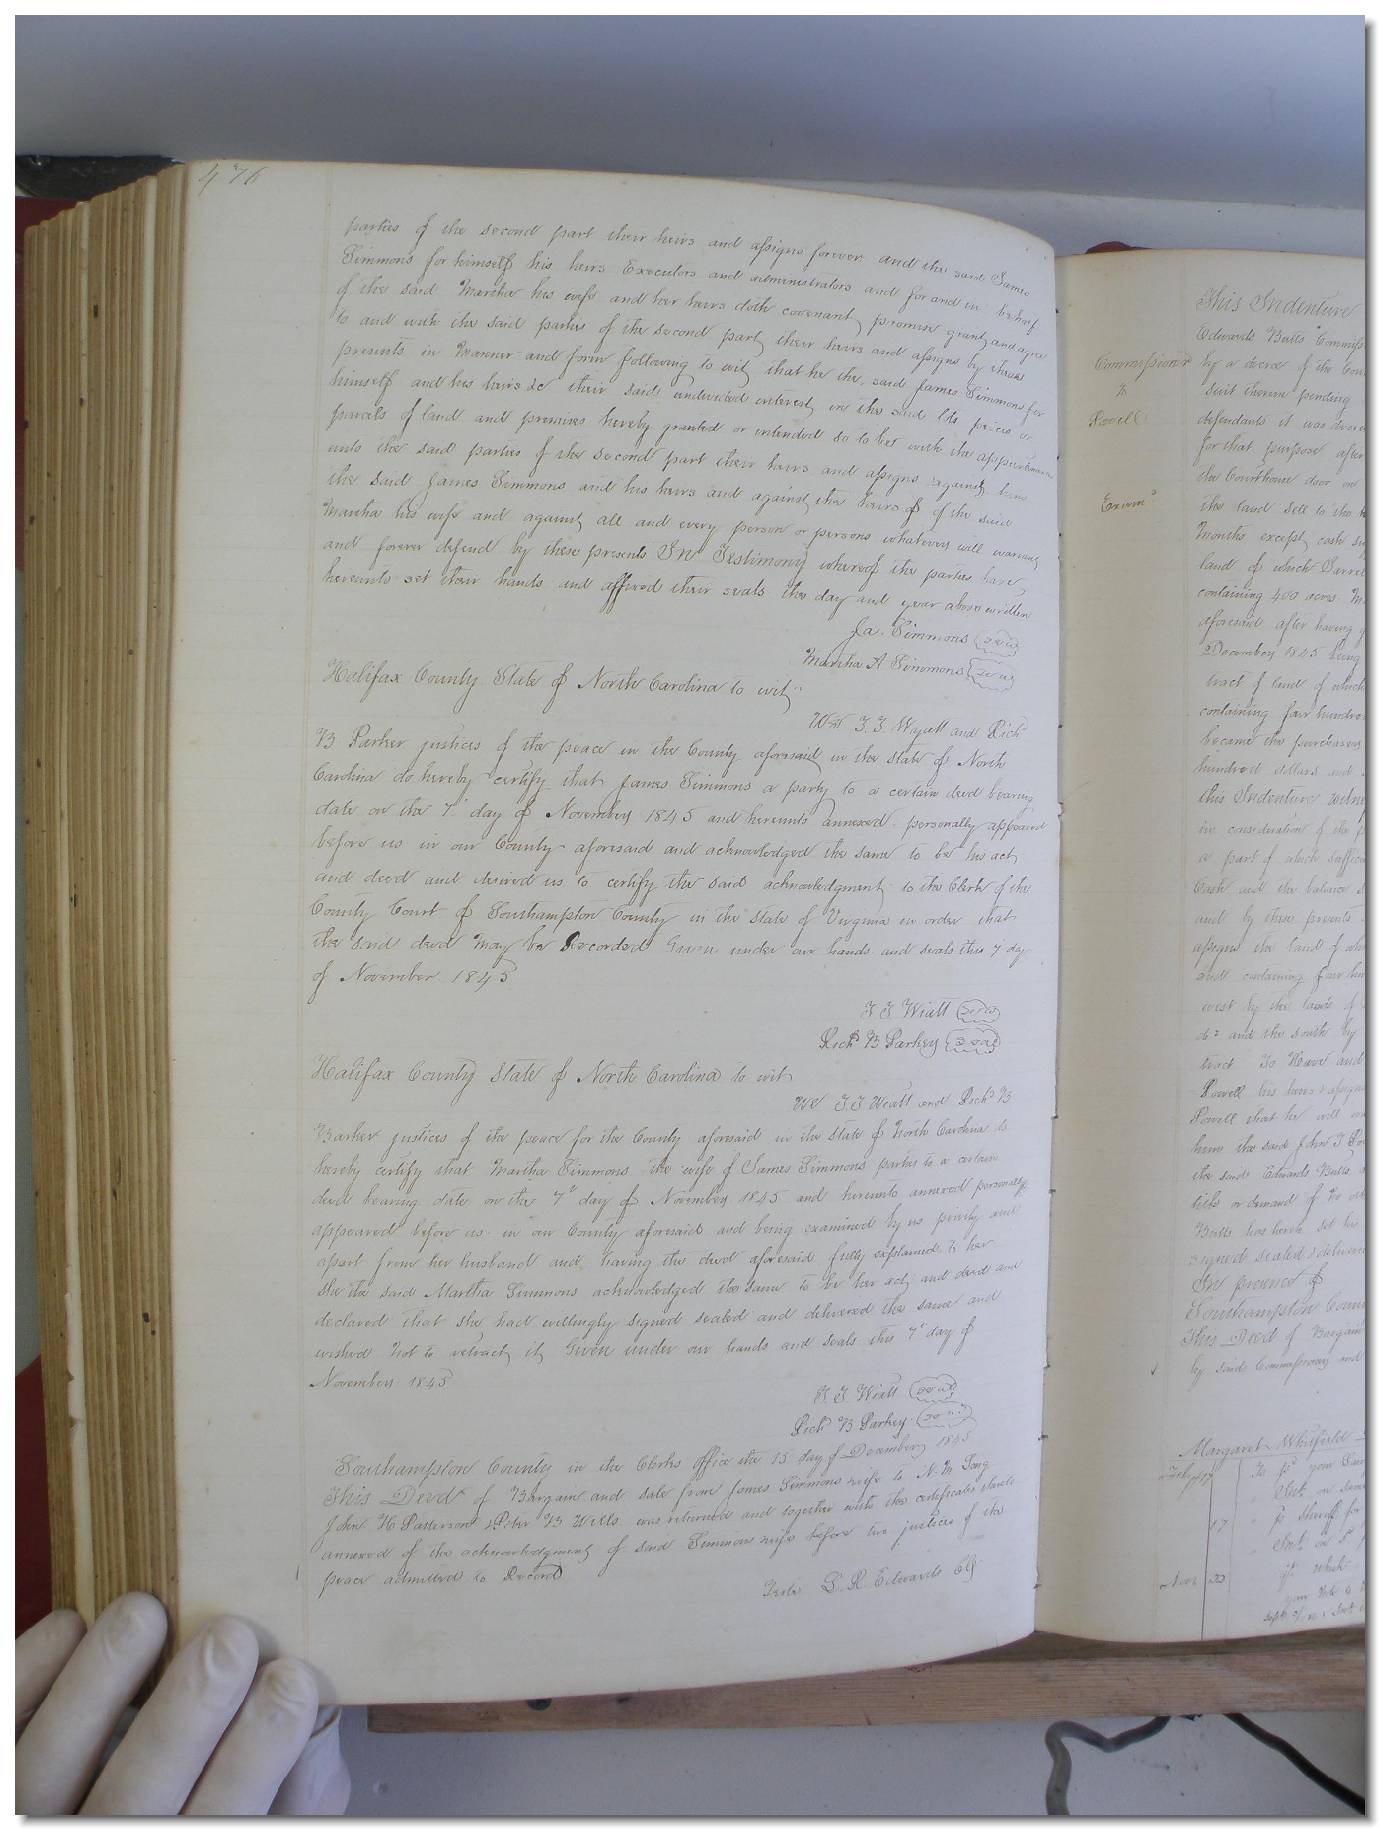 476
parties of the second part their heirs and assigns forever and the said James
Simmons for himself his heirs Executors and administrators and for and in behalf
of the said Martha his wife and her heirs doth covenant promise grant and agree
to and with the said parties of the second part their heirs and assigns by these
presents in manner and form following to wit that he the said James Simmons for
himself and his heirs &c their said undivided interest in the said lots pieces or
parcels of land and premises hereby granted or intended so to be with the appurtenances
unto the said parties of the second part their heirs and assigns against him
the said James Simmons and his heirs and against the heirs of of the said
Martha his wife and against all and every person or persons whatever will warrant
and forever defend by these presents In Testimony whereof the parties have
hereunto set their hands and affixed their seals the day and year above written
Ja. Simmons seal
Martha A Simmons seal
Halifax County State of North Carolina to wit
We J. J. Wyatt and Rich
B Parker justices of the peace in the County aforesaid in the State of North
Carolina do hereby certify that James Simmons a party to a certain deed bearing
date on the 7 day of November 1845 and hereunto annexed personally appeared
before us in our County aforesaid and acknowledged the same to be his act
and deed and desired us to certify the said acknowledgment to the Clerk of the
County Court of Southampton County in the State of Virginia in order that
the said deed may be Recorded Given under our hands and seals this 7 day
of November 1845
J J Wiatt seal
Richd B Parker seal
Halifax County State of North Carolina to wit
We J J Wiatt and Richd B
Parker justices of the peace for the County aforesaid in the State of North Carolina do
hereby certify that Martha Simmons the wife of James Simmons parties to a certain
deed bearing date on the 7th day of November 1845 and hereunto annexed personally
appeared before us in our County aforesaid and being examined by us privily and
apart from her husband and having the deed aforesaid fully explained to her
she the said Martha Simmons acknowledged the same to be her act and deed and
declared that she had willingly signed sealed and delivered the same and
wished not to retract it Given under our hands and seals this 7 day of
November 1845
J. J. Wiatt seal
Rich B Parker seal
Southampton County in the Clerks office the 15 day of December 1845
This Deed of Bargain and sale from James Simmons & wife to N. M
John H Patterson & Peter B Wells was returned and together with the certificates thereto
annexed of the acknowledgment of said Simmons & wife before two justices of the
peace admitted to Record
Teste L. R. Edwards Clk
This Indenture
Edwards Butts Commiss
Commissioner
by a decree of the
to
suit therein pending
Powell
defendants it was decreed
for that purpose after
the Courthouse door on
the land sell to the
Months except cash
land of which
containing 400 acres
aforesaid after having
December 1845 being
tract of land of which
containing four hundred
became the purchasers
hundred dollars and
this Indenture
in consideration of the
a part of which
Cash and the balance
and by these presents
assigns the land of
and containing four
west by the lands of
and the south by
tract To Have and
Powell his heirs & assigns
Powell that he will
him the said John T
the said Edwards Butts
title or demand of
Butts has hereto set his
signed sealed & delivered
In presence of
Southampton Coun
This Deed of Bargain
by said Commissioner and
Margaret Whitfield
17
Nov 23